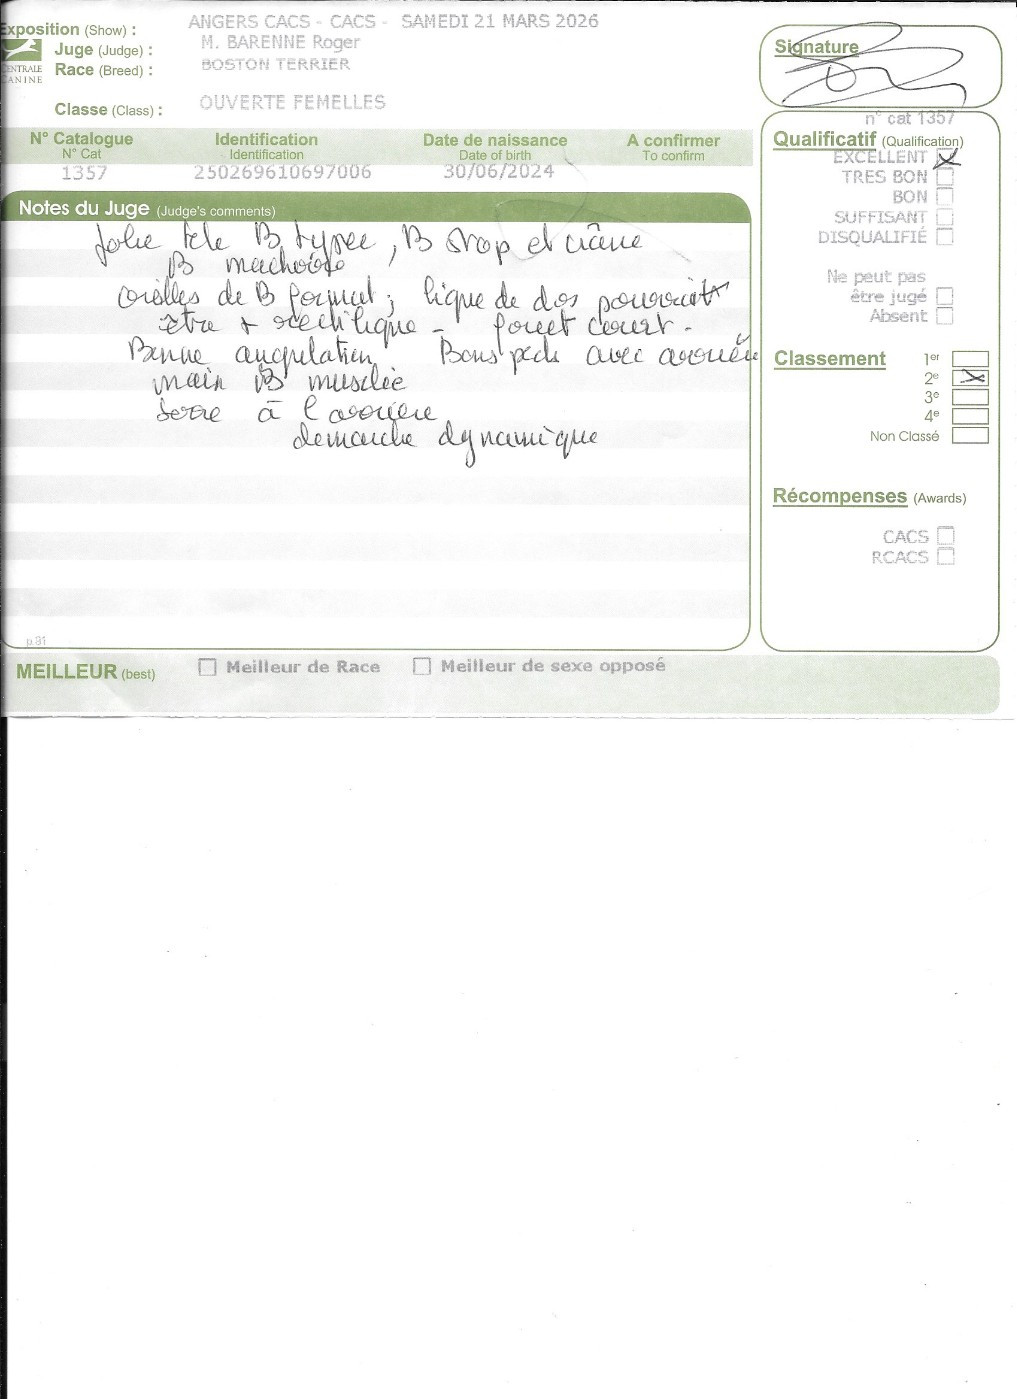 Exposition (Show) : ANGERS CACS - CACS - SAMEDI 21 MARS 2026
Juge (Judge) : M. BARENNE Roger
CENTRALE CANINE
Race (Breed) : BOSTON TERRIER
Classe (Class) : OUVERTE FEMELLES
Signature
N° Catalogue Identification Date de naissance A confirmer
N° Cat Identification Date of birth To confirm
1357 250269610697006 30/06/2024
Notes du Juge (Judge's comments)
Jolie tete B typee, B stop et crâne
B machoire
oreilles de B format ; ligne de dos pourrait
etre + rectiligne - fouet court -
Bonne angulation Bons pieds avec arriere
main B musclée
serre à l'arriere
demarche dynamique
p.81
n° cat 1357
Qualificatif (Qualification)
EXCELLENT
TRES BON
BON
SUFFISANT
DISQUALIFIÉ
Ne peut pas
être jugé
Absent
Classement 1er
2e
3e
4e
Non Classé
Récompenses (Awards)
CACS
RCACS
MEILLEUR (best) Meilleur de Race Meilleur de sexe opposé